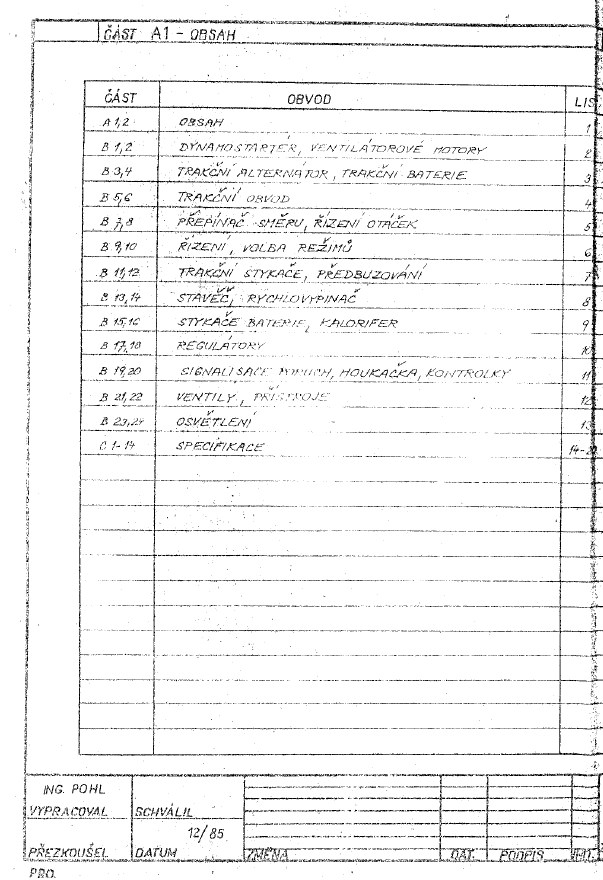 ČÁST A1 - OBSAH
ČÁST OBVOD LIS
A 1,2 OBSAH 1
B 1,2 DYNAMOSTARTÉR, VENTILÁTOROVÉ MOTORY 2
B 3,4 TRAKČNÍ ALTERNÁTOR, TRAKČNÍ BATERIE 3
B 5,6 TRAKČNÍ OBVOD 4
B 7,8 PŘEPÍNAČ SMĚRU, ŘÍZENÍ OTÁČEK 5
B 9,10 ŘÍZENÍ, VOLBA REŽIMŮ 6
B 11,12 TRAKČNÍ STYKAČE, PŘEDBUZOVÁNÍ 7
B 13,14 STAVĚČ, RYCHLOVYPINAČ 8
B 15,16 STYKAČE BATERIE, KALORIFER 9
B 17,18 REGULÁTORY 10
B 19,20 SIGNALISACE PORUCH, HOUKAČKA, KONTROLKY 11
B 21,22 VENTILY, PŘÍSTROJE 12
B 23,24 OSVĚTLENÍ 13
C 1-14 SPECIFIKACE 14-2
ING. POHL
VYPRACOVAL SCHVÁLIL
12/85
PŘEZKOUŠEL DATUM ZMĚNA DAT. PODPIS
PRO.